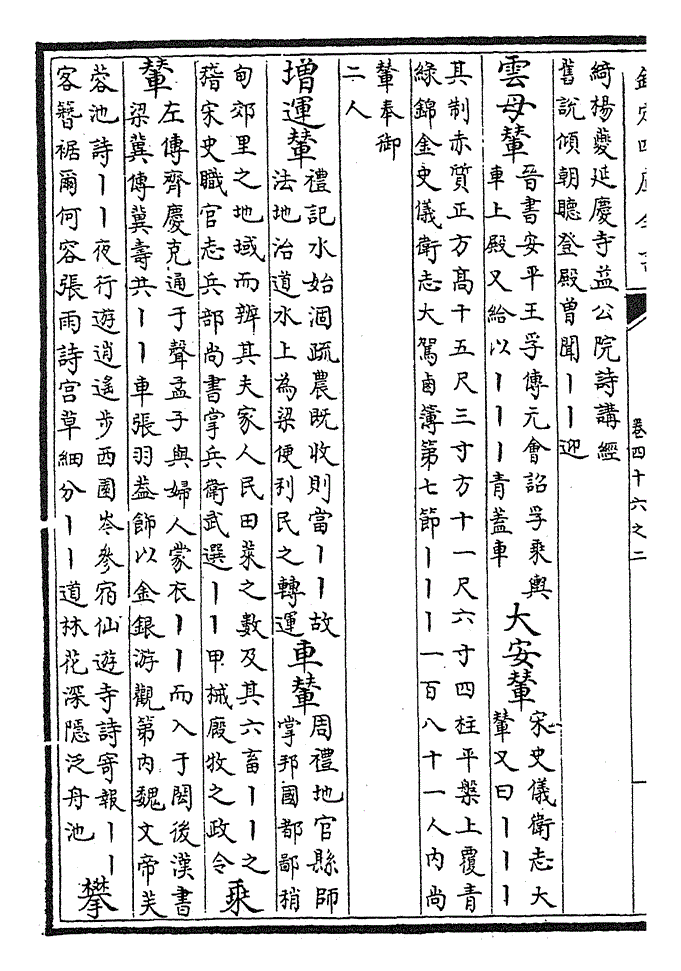 欽定四庫全書
卷四十六之二
綺楊夔延慶寺益公院詩講經
舊說傾朝聽登殿曾聞丨丨迎
雲母輦
晉書安平王孚傳元會詔孚乘輿
車上殿又給以丨丨丨青蓋車
大安輦
宋史儀衛志大
輦又曰丨丨丨
其制赤質正方高十五尺三寸方十一尺六寸四柱平盤上覆青
綠錦金史儀衛志大駕鹵簿第七節丨丨丨一百八十一人内尚
輦奉御
二人
增運輦
禮記水始涸疏農既收則當丨丨故
法地治道水上為梁便利民之轉運
車輦
周禮地官縣師
掌邦國都鄙稍
甸郊里之地域而辨其夫家人民田萊之數及其六畜丨丨之
稽宋史職官志兵部尚書掌兵衛武選丨丨甲械廄牧之政令
乘
輦
左傳齊慶克通于聲孟子與婦人蒙衣丨丨而入于閎後漢書
梁冀傳冀壽共丨丨車張羽葢飾以金銀游觀第内魏文帝芙
蓉池詩丨丨夜行遊逍遙步西園岑參宿仙遊寺詩寄報丨丨
客簪裾爾何容張雨詩宫草細分丨丨道林花深隱泛舟池
攀